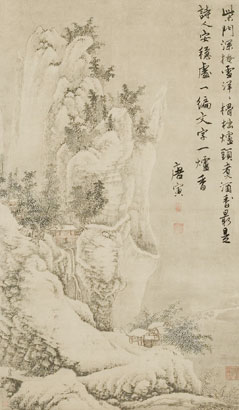 柴門深掩雪洋々榾柮爐頭煮酒香最是
詩人安穩處一編文字一爐香
唐寅